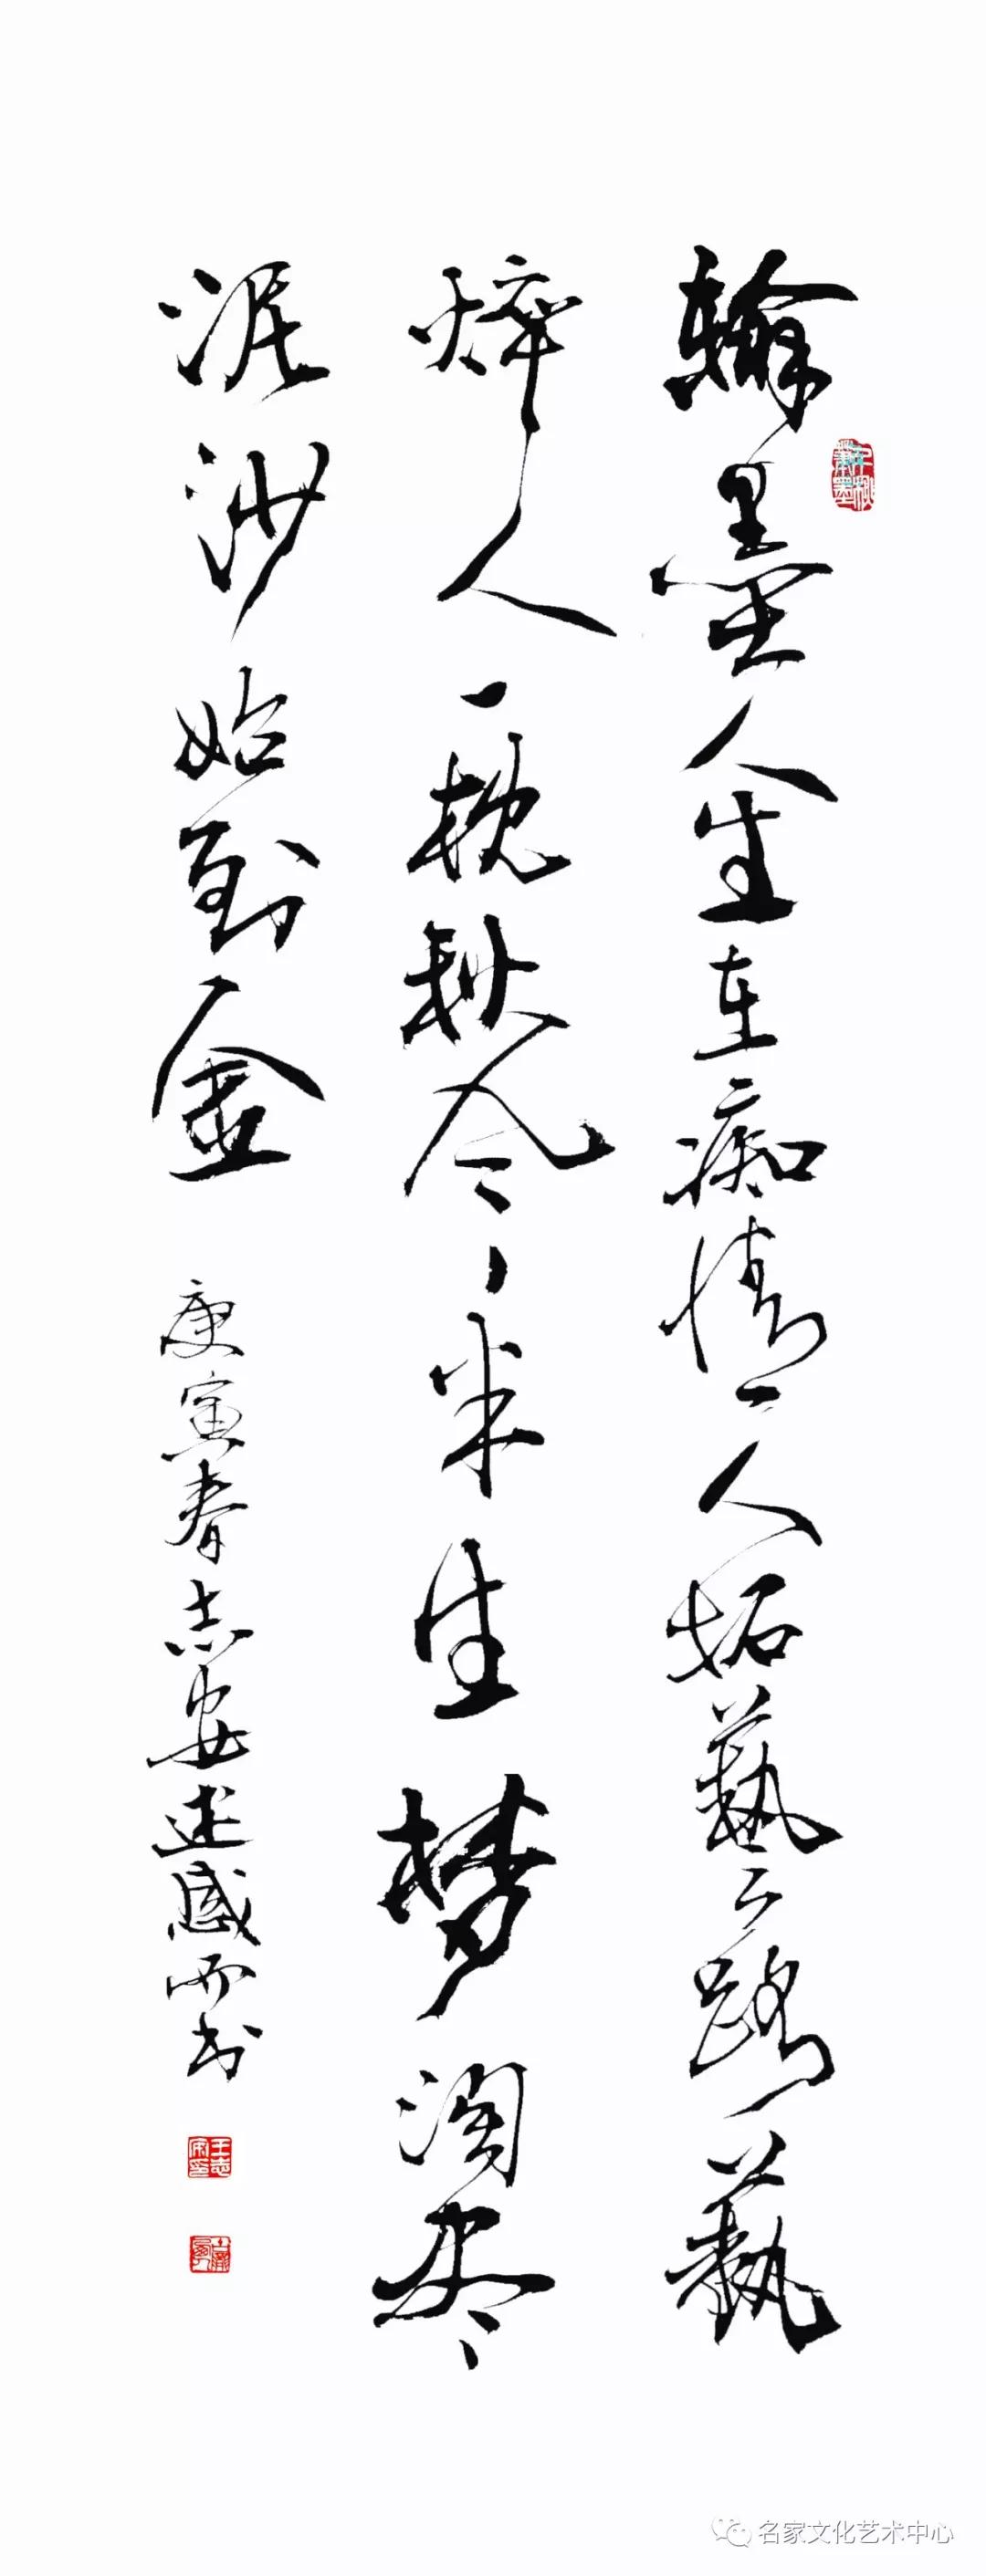 翰墨人生在痴情一人拓藝之路藝
焠人一枕半生梦淘尽
泥沙始到金
庚寅春志安述感而书
王志安印
名家文化艺术中心